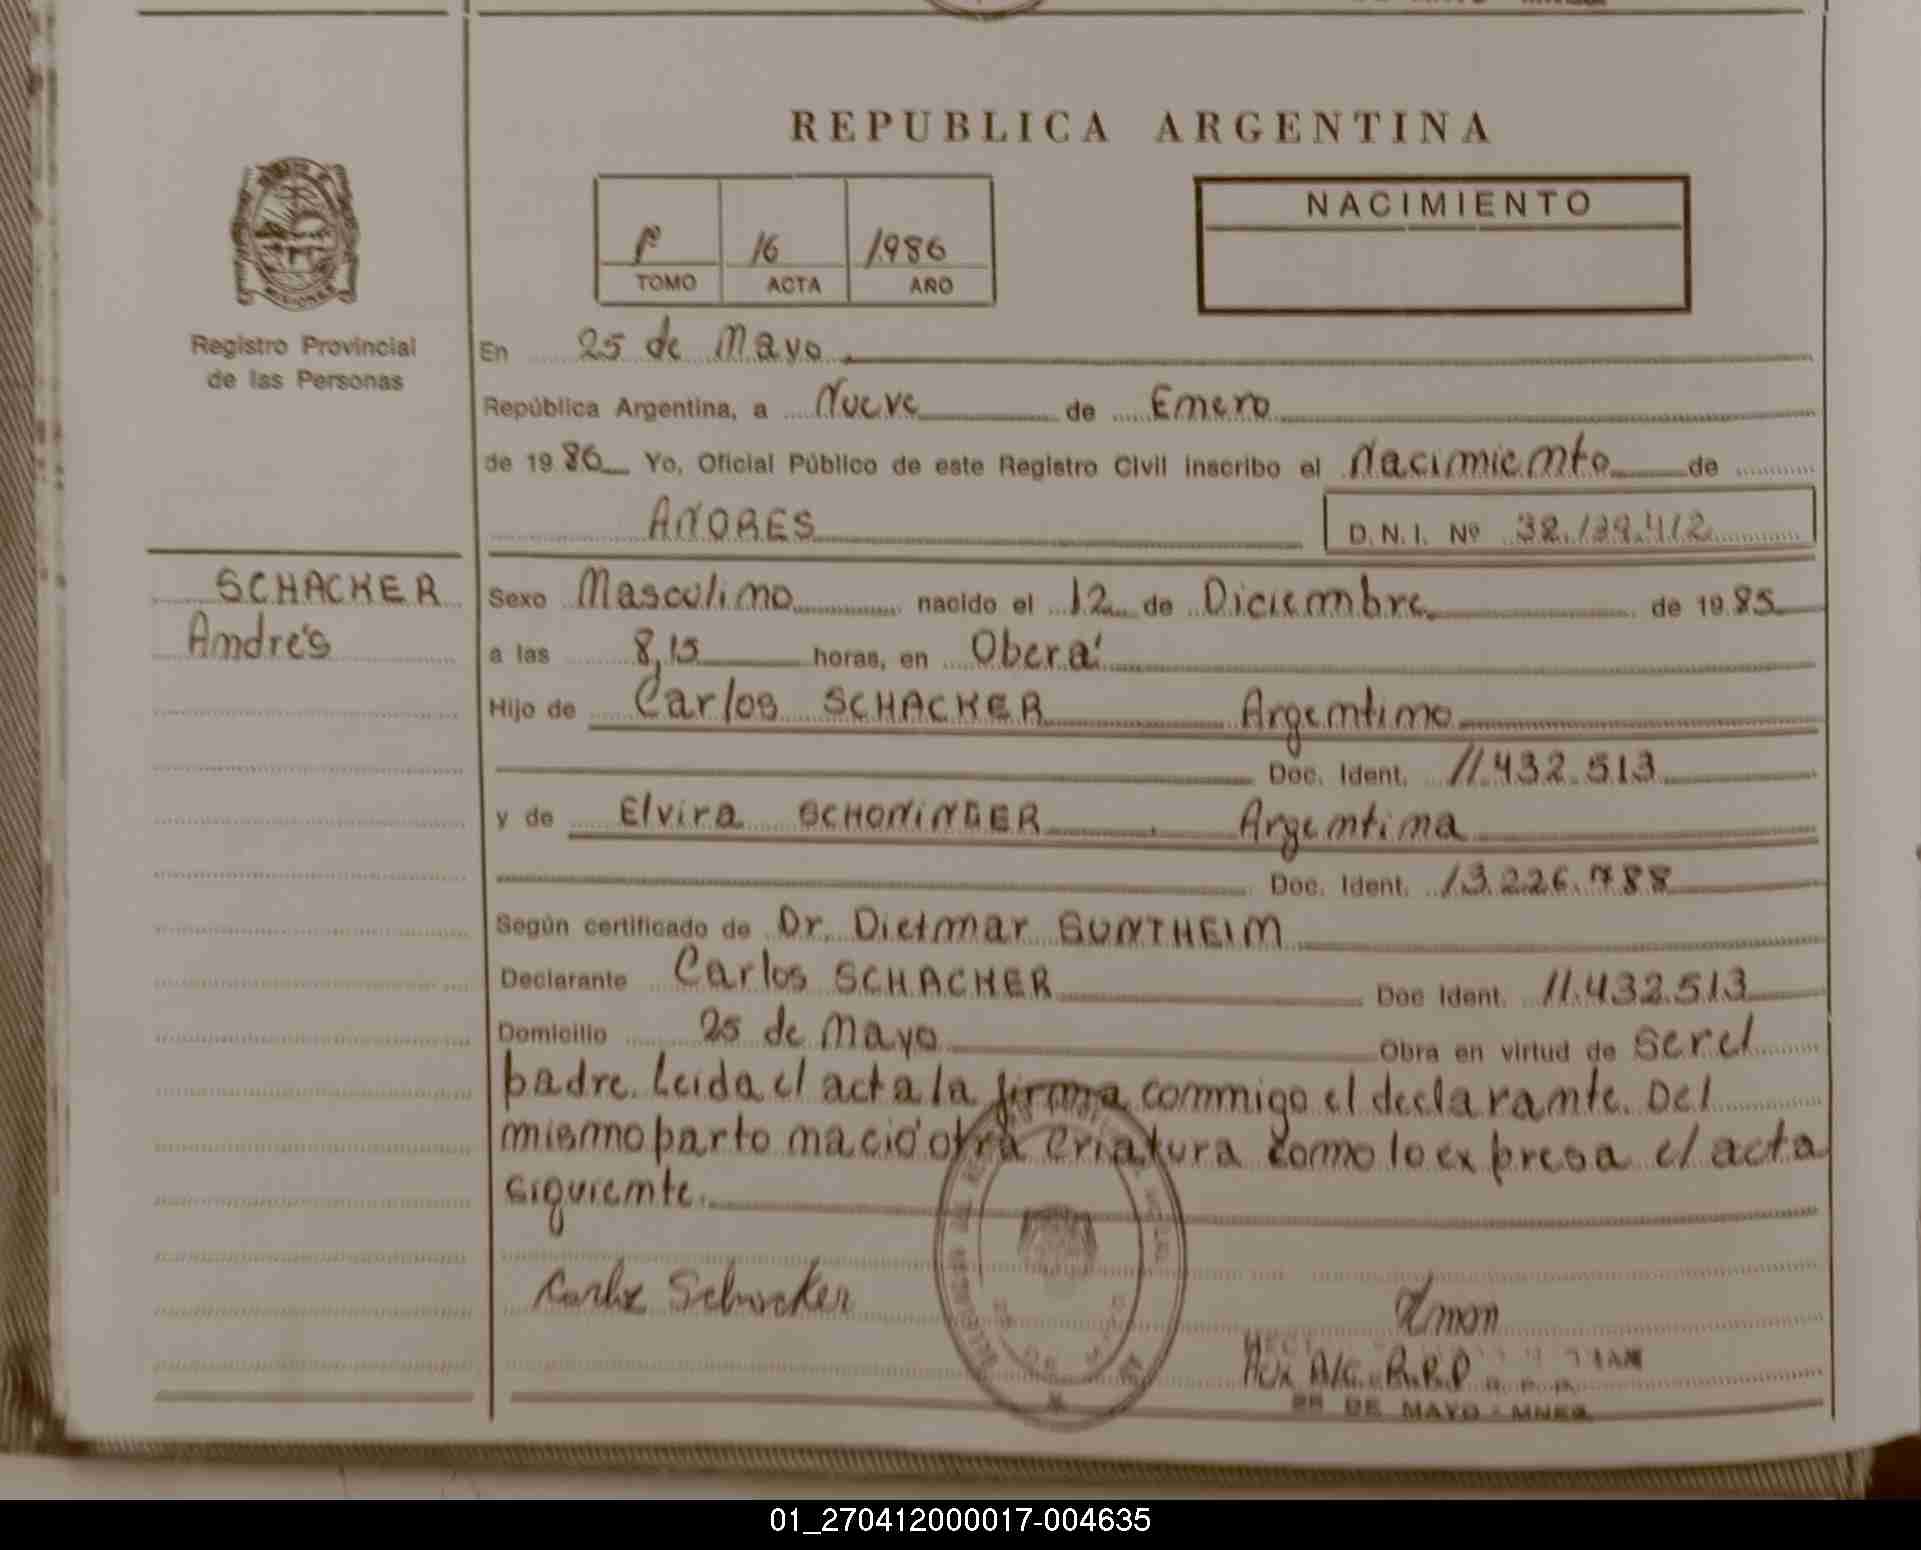 REPUBLICA ARGENTINA
NACIMIENTO
16 1986
TOMO ACTA AÑO
MISIONES
Registro Provincial
de las Personas
En 25 de Mayo
República Argentina, a Nueve de Enero
de 1986 Yo, Oficial Público de este Registro Civil inscribo el Nacimiento de
ANDRES
D.N.I. Nº 32.129.412
SCHACKER
Andrés
Sexo Masculino nacido el 12 de Diciembre de 1985
a las 8,15 horas, en Oberá
Hijo de Carlos SCHACKER Argentino
Doc. Ident. 11.432.513
y de Elvira SCHONINGER Argentina
Doc. Ident. 13.226.788
Según certificado de Dr. Dietmar SUNTHEIM
Declarante Carlos SCHACKER Doc Ident. 11.432.513
Domicilio 25 de Mayo Obra en virtud de ser el
padre. Leida el acta la firma conmigo el declarante. Del
mismo parto nació otra criatura como lo expresa el acta
siguiente.
Carlos Schacker
25 DE MAYO - MNES.
01_270412000017-004635